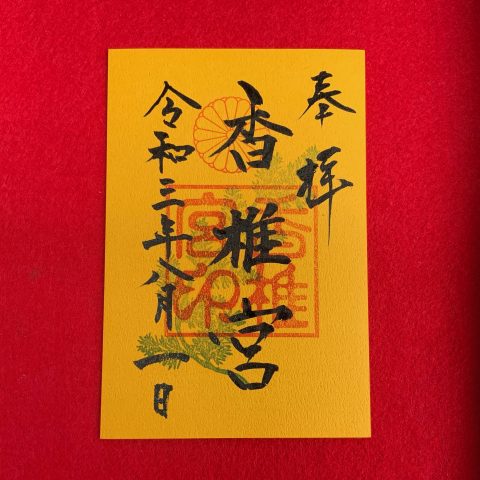 奉拝
香椎宮
香椎宮印
令和三年八月一日